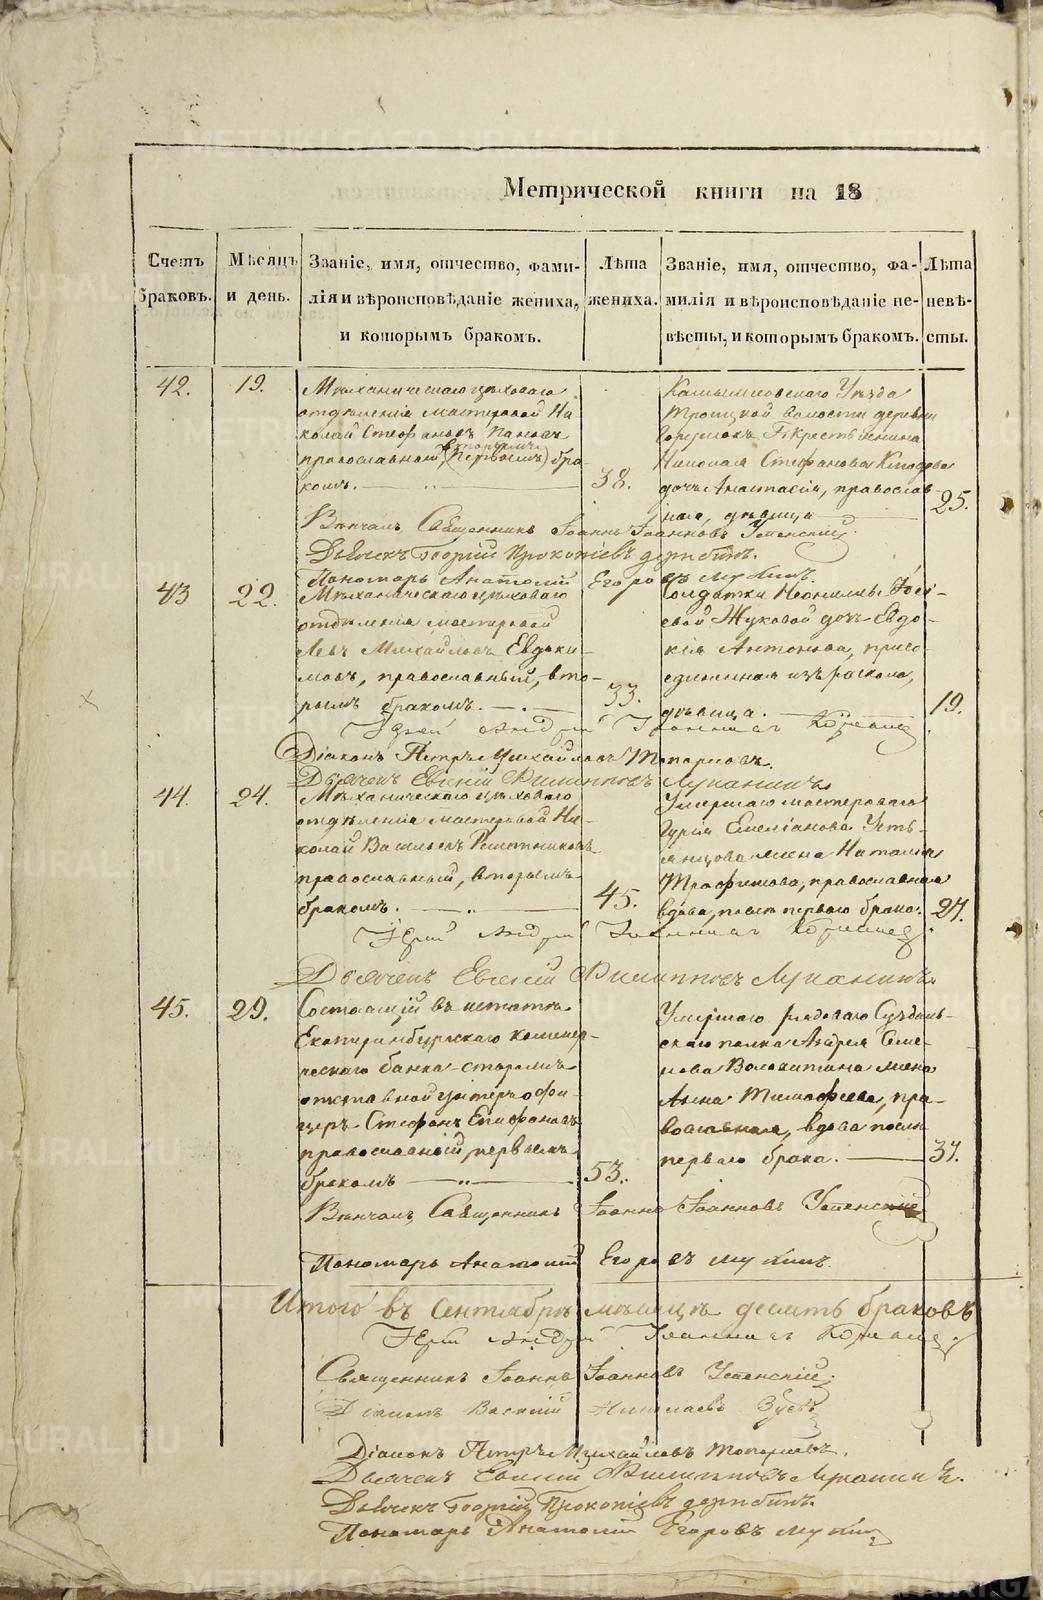 Метрической книги на 18
Счетъ браковъ.
Мѣсяцъ и день.
Званіе, имя, отчество, фами-
лія и вѣроисповѣданіе жениха,
и которымъ бракомъ.
Лѣта
жениха.
Званіе, имя, отчество, фа-
милія и вѣроисповѣданіе не-
вѣсты, и которымъ бракомъ.
Лѣта
невѣ-
сты.
42.
19.
Механическаго цѣховаго
отдѣленія мастеровой Ни-
колай Стефановъ
православной, вторымъ (первымъ) бра-
комъ.
38.
Камышловскаго Уѣзда
Троицкой волости деревни
крестьянина
Николая Стефанова
дочь Анастасія, православ
ная, дѣвица
25.
Вѣнчалъ Священникъ Іоаннъ Іоанновъ Успенскій
Дьячекъ Георгій Прокопіевъ
Пономарь Анатолій Егоровъ
43
22.
Механическаго цѣховаго
отдѣленія мастеровой
Левъ Михайловъ Евдоки-
мовъ, православный, вто-
рымъ бракомъ.
33.
Солдатки Неонилы
евой Жуковой дочь Евдо-
кія Антонова, присо-
единенная изъ раскола,
дѣвица.
19.
Іерей Андрей
Діаконъ Петръ Михайловъ Топорковъ.
Дьячекъ Евгеній Филипповъ Луканинъ
44.
24.
Механическаго цѣховаго
отдѣленія мастеровой Ни-
колай Васильевъ Решетниковъ
православный, вторымъ
бракомъ.
45.
Умершаго мастероваго
Гурія Емеліанова Усть-
янцова жена Наталья
Трофимова, православная
вдова, послѣ перваго брака.
27.
Іерей Андрей
Дьячекъ Евгеній Филипповъ Луканинъ
45.
29.
Состоящій въ штатѣ
Екатеринбургскаго коммер-
ческаго банка сторожъ
отставной унтеръ офи-
церъ Стефанъ Епифановъ
православный, первымъ
бракомъ
53.
Умершаго рядоваго Суздаль-
скаго полка Андрея Семе-
нова Волокитина жена
Анна Тимофеева, пра-
вославная, вдова послѣ
перваго брака.
37.
Вѣнчалъ Священникъ Іоаннъ Іоанновъ Успенскій
Пономарь Анатолій Егоровъ
Итого въ Сентябрѣ мѣсяцѣ десять браковъ
Іерей Андрей
Священникъ Іоаннъ Іоанновъ Успенскій
Діаконъ Василій Николаевъ Зуевъ
Діаконъ Петръ Михайловъ Топорковъ.
Дьячекъ Евгеній Филипповъ Луканинъ.
Дьячекъ Георгій Прокопіевъ
Пономарь Анатолій Егоровъ
METRIKI.GASO-URAL.RU